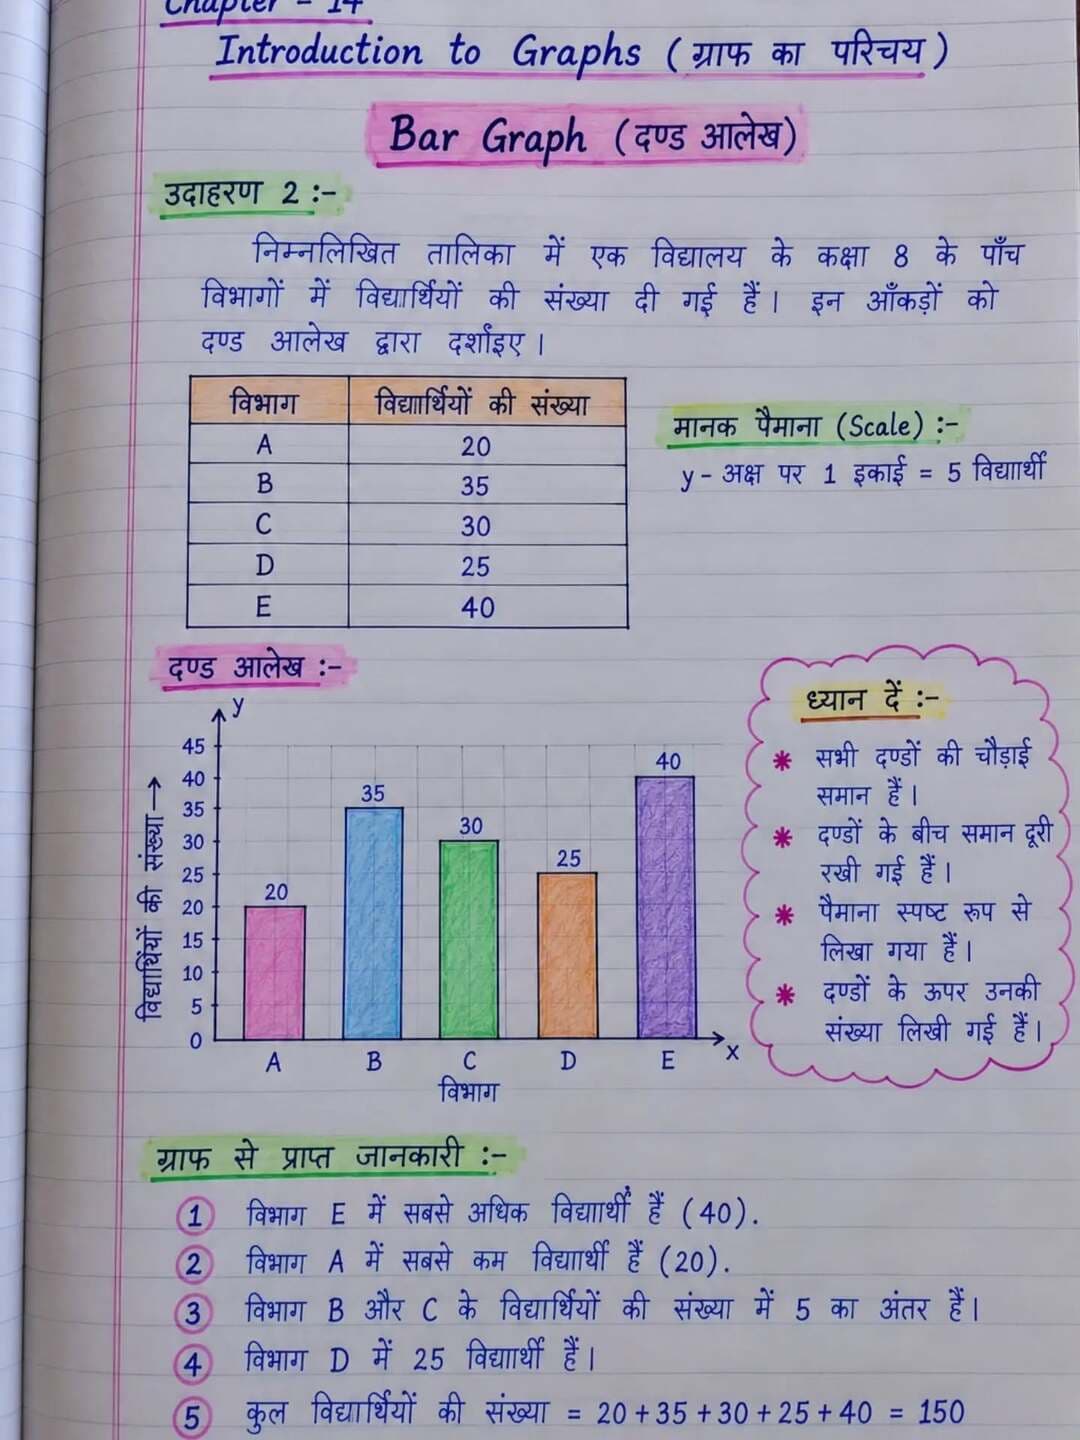 Chapter - 14
Introduction to Graphs (ग्राफ का परिचय)
Bar Graph (दण्ड आलेख)
उदाहरण 2 :-
निम्नलिखित तालिका में एक विद्यालय के कक्षा 8 के पाँच
विभागों में विद्यार्थियों की संख्या दी गई हैं। इन आँकड़ों को
दण्ड आलेख द्वारा दर्शाइए।
विभाग विद्यार्थियों की संख्या
A 20
B 35
C 30
D 25
E 40
मानक पैमाना (Scale) :-
y - अक्ष पर 1 इकाई = 5 विद्यार्थी
दण्ड आलेख :-
y
विद्यार्थियों की संख्या →
45
40
35
30
25
20
15
10
5
0
20
35
30
25
40
A B C D E
x
विभाग
ध्यान दें :-
* सभी दण्डों की चौड़ाई
समान हैं।
* दण्डों के बीच समान दूरी
रखी गई हैं।
* पैमाना स्पष्ट रूप से
लिखा गया हैं।
* दण्डों के ऊपर उनकी
संख्या लिखी गई हैं।
ग्राफ से प्राप्त जानकारी :-
1 विभाग E में सबसे अधिक विद्यार्थी हैं (40).
2 विभाग A में सबसे कम विद्यार्थी हैं (20).
3 विभाग B और C के विद्यार्थियों की संख्या में 5 का अंतर हैं।
4 विभाग D में 25 विद्यार्थी हैं।
5 कुल विद्यार्थियों की संख्या = 20 + 35 + 30 + 25 + 40 = 150